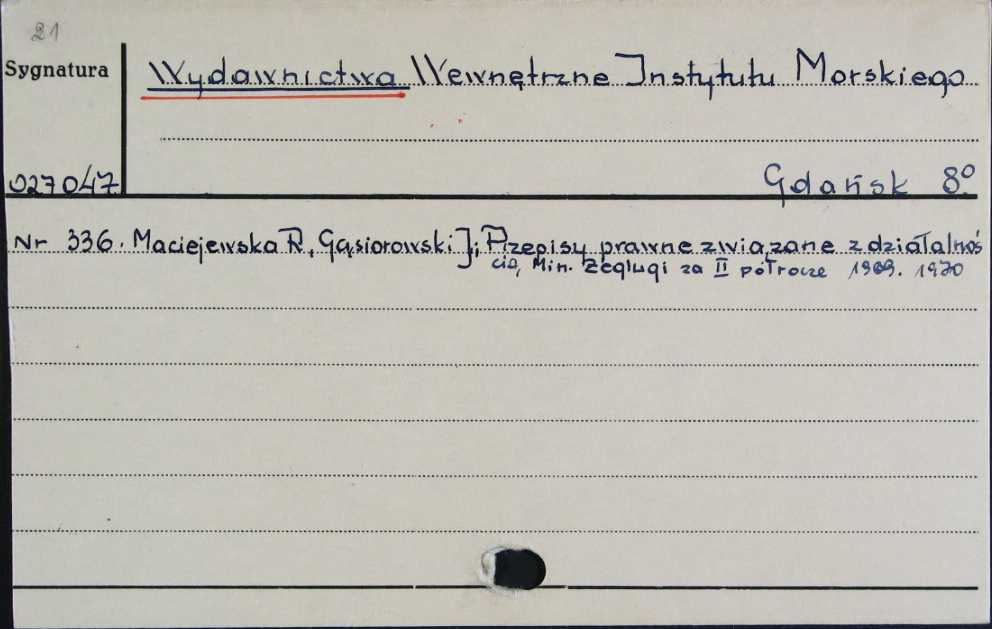 21
Sygnatura
Wydawnictwa Wewnętrzne Instytutu Morskiego
027047
Gdańsk 8°
Nr 336. Maciejewska R., Gąsiorowski J.; Przepisy prawne związane z działalnoś
cią, Min. Żeglugi za II półrocze 1969. 1970